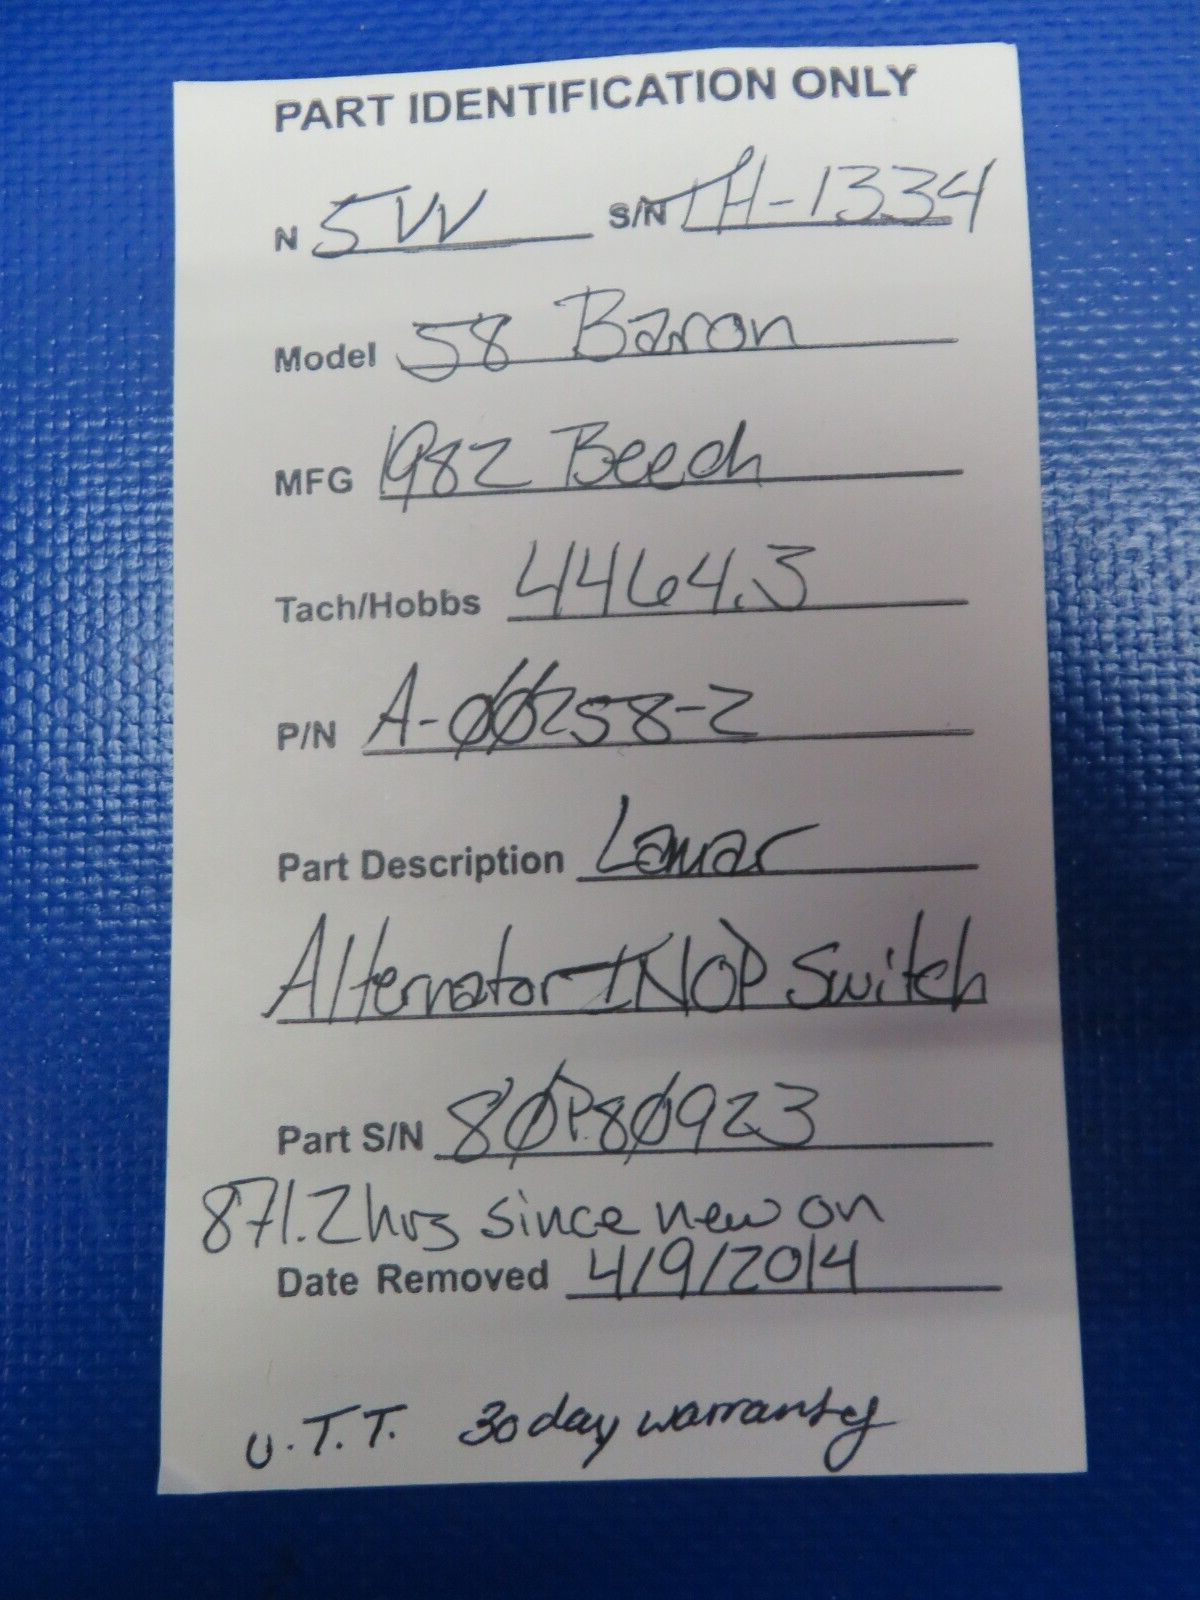 PART IDENTIFICATION ONLY
N 5VV S/N TH-1334
Model 58 Baron
MFG 1982 Beech
Tach/Hobbs 4464.3
P/N A-00258-2
Part Description Lamar
Alternator INOP Switch
Part S/N 80P80923
871.2 hrs since new on
Date Removed 4/9/2014
U.T.T. 30 day warranty